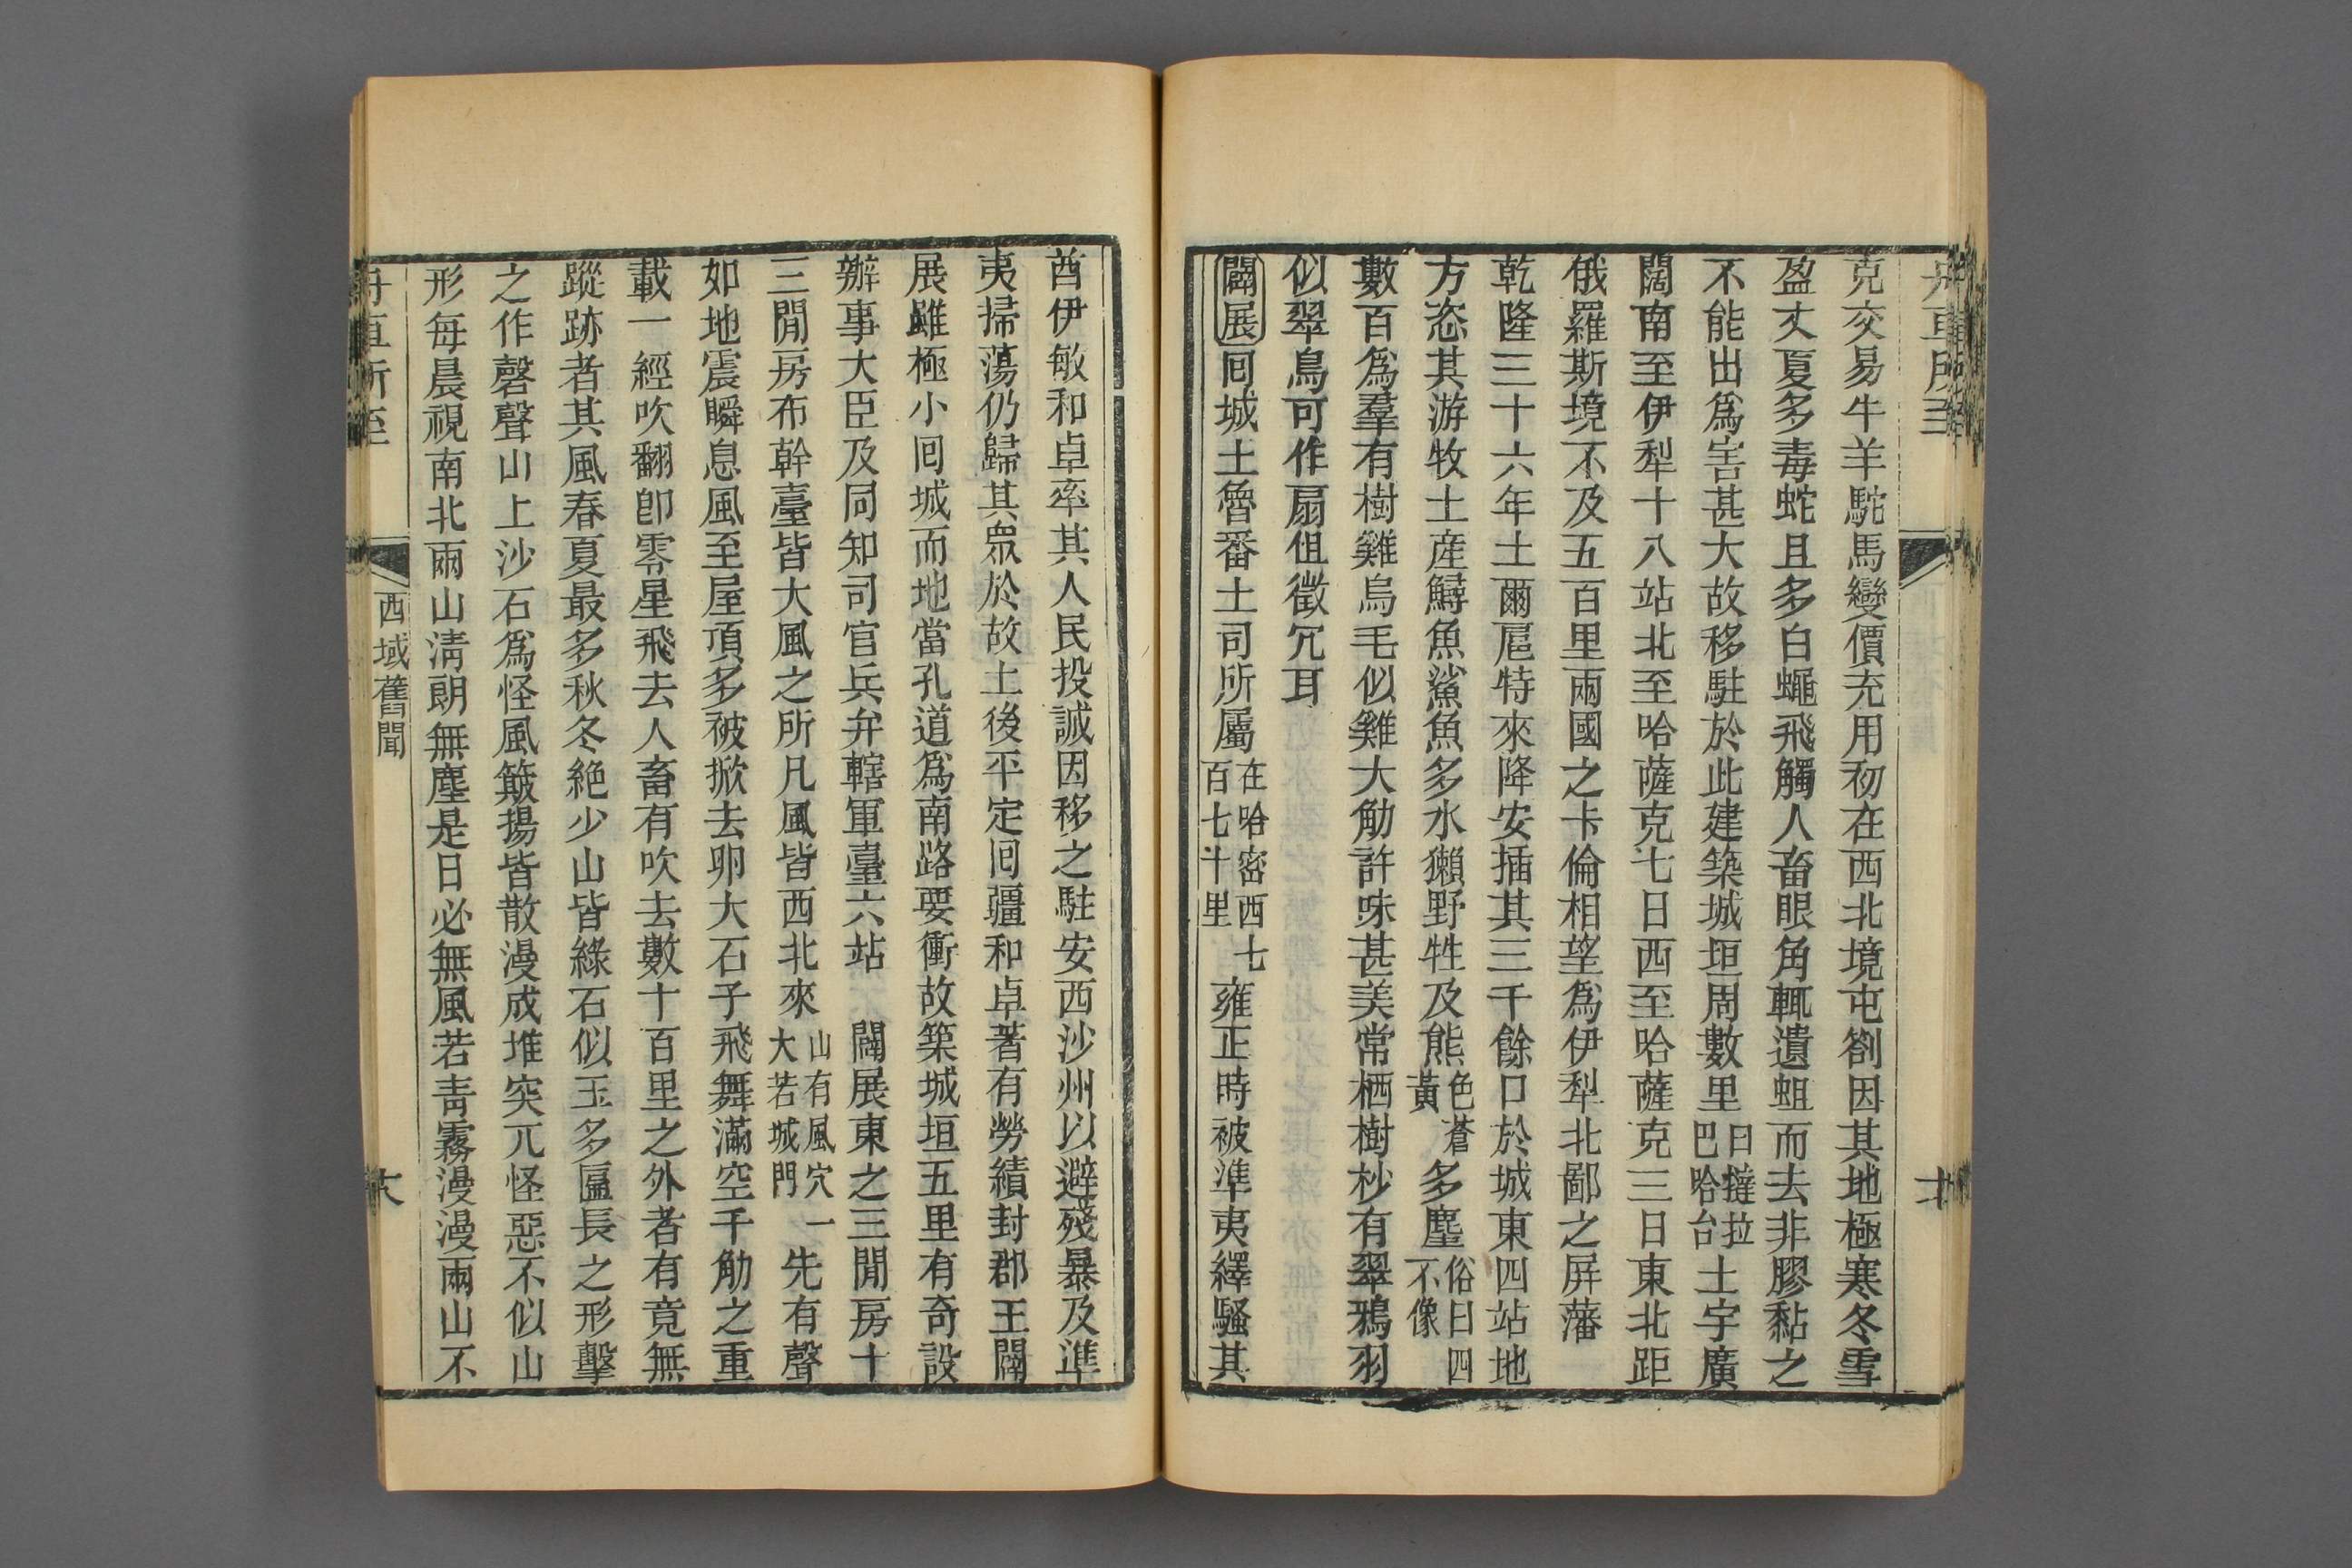 克交易牛羊駝馬變價充用初在西北境屯劄因其地極寒冬雪
盈丈夏多毒蛇且多白蠅飛觸人畜眼角輒遺蛆而去非膠黏之
不能出爲害甚大故移駐於此建築城垣周數里曰㺚拉巴哈台土宇廣
闊南至伊犁十八站北至哈薩克七日西至哈薩克三日東北距
俄羅斯境不及五百里兩國之卡倫相望爲伊犁北鄙之屏藩
乾隆三十六年土爾扈特來降安插其三千餘口於城東四站地
方恣其游牧土產鱘魚鯊魚多水獺野牲及熊色蒼黃多麈俗曰四不像
數百爲羣有樹雞烏毛似雞大觔許味甚美常栖樹杪有翠鴉羽
似翠鳥可作扇但徵冗耳
闢展囘城土魯番土司所屬在哈密西七百七十里雍正時被準夷繹騷其
酋伊敏和卓率其人民投誠因移之駐安西沙州以避殘暴及準
夷掃蕩仍歸其眾於故土後平定囘疆和卓著有勞績封郡王闢
展雖極小囘城而地當孔道爲南路要衝故築城垣五里有奇設
辦事大臣及同知司官兵弁轄軍臺六站 闢展東之三間房十
三間房布幹臺皆大風之所凡風皆西北來山有風穴一大若城門先有聲
如地震瞬息風至屋頂多被掀去卵大石子飛舞滿空千觔之重
載一經吹翻卽零星飛去人畜有吹去數十百里之外者有竟無
蹤跡者其風春夏最多秋冬絶少山皆綠石似玉多匾長之形擊
之作磬聲山上沙石爲怪風簸揚皆散漫成堆突兀怪惡不似山
形每晨視南北兩山淸朗無塵是日必無風若靑霧漫漫兩山不
西域舊聞